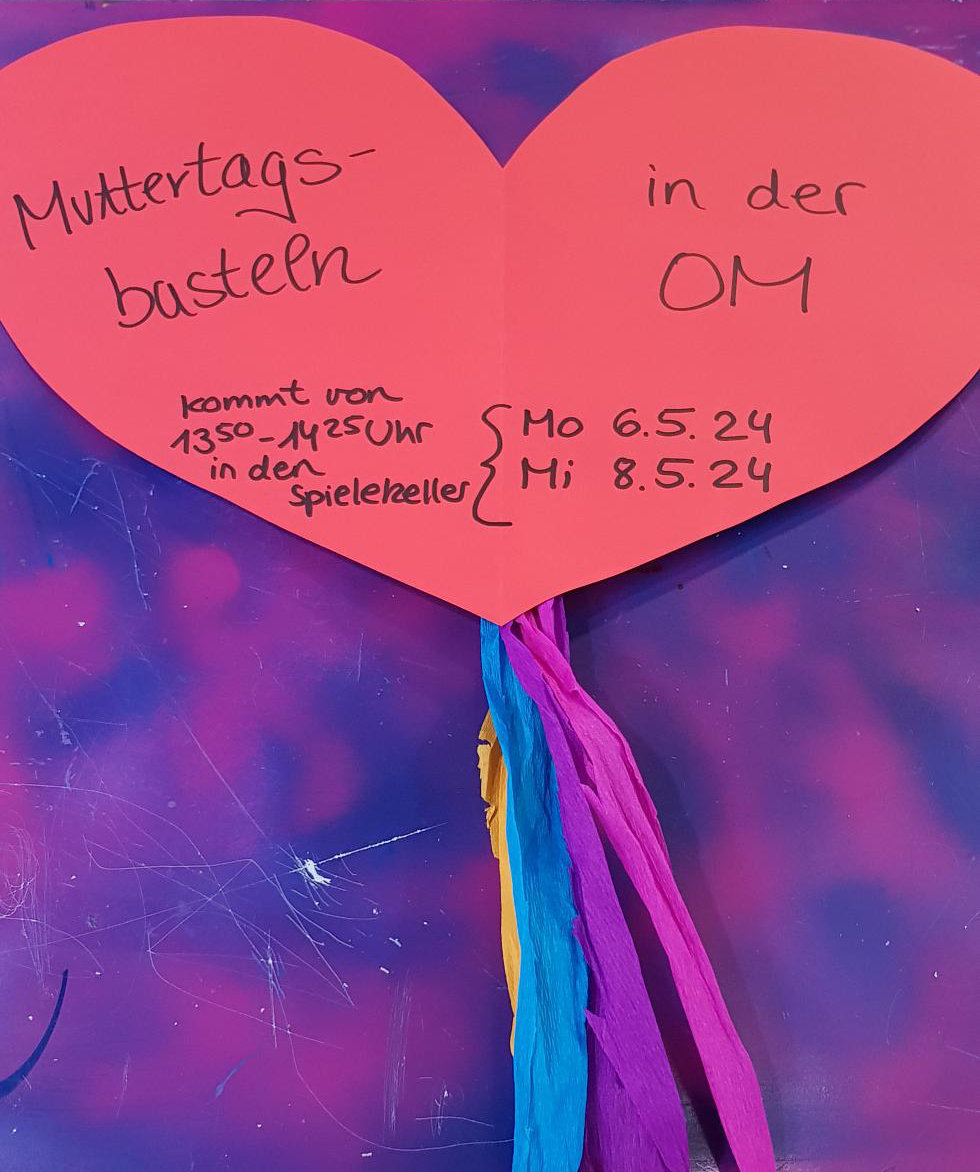 Muttertags-
basteln
in der
OM
kommt von
13⁵⁰-14²⁵ Uhr
in den
Spielekeller
{ Mo 6.5.24
Mi 8.5.24